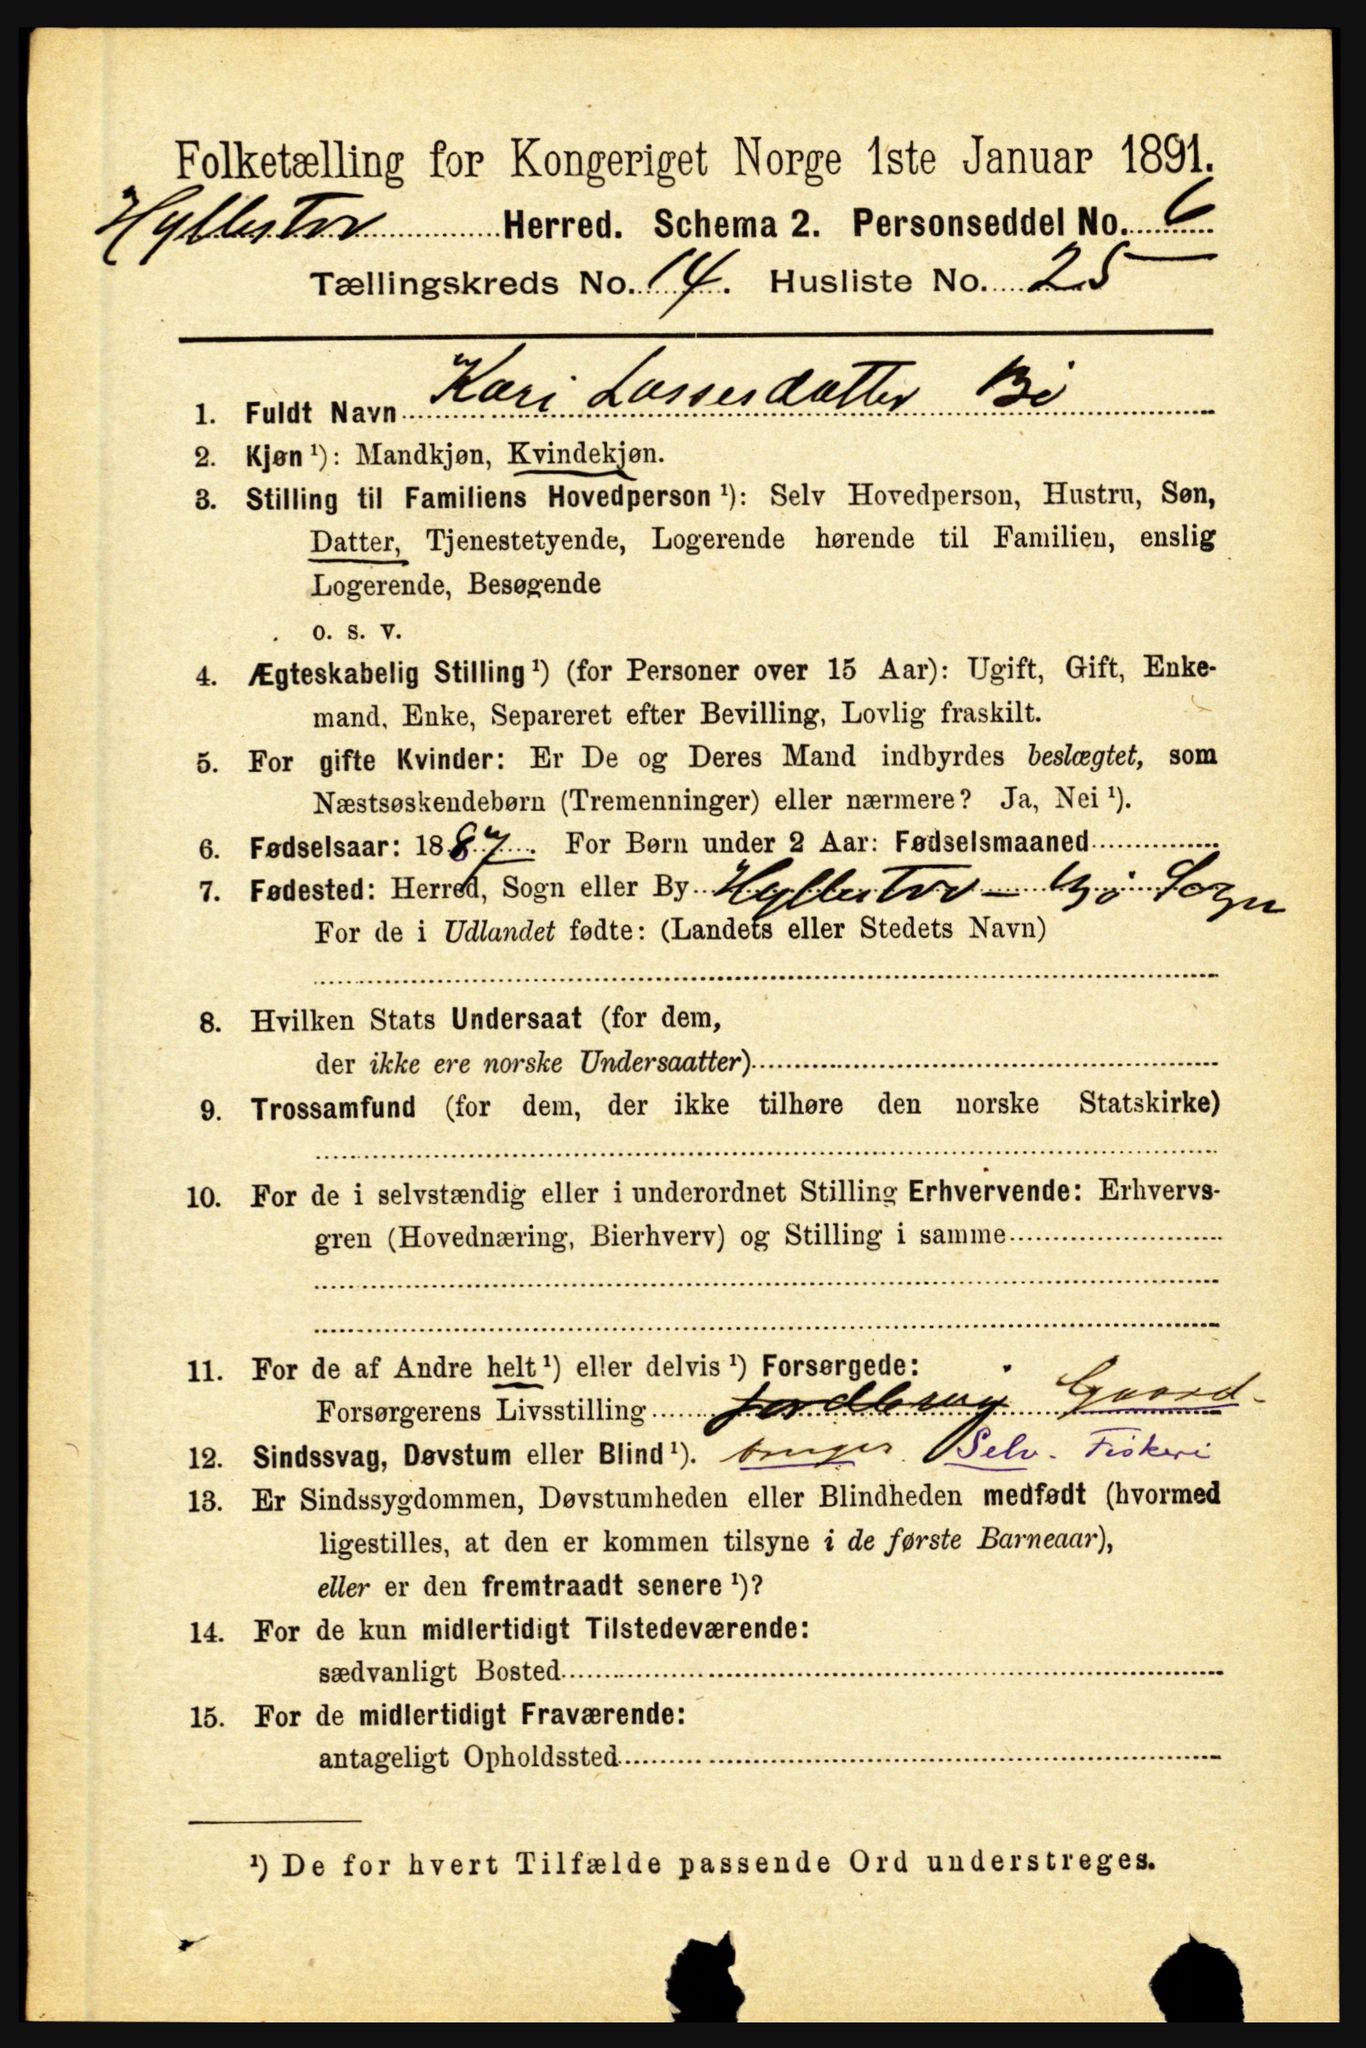 Folketælling for Kongeriget Norge 1ste Januar 1891.
Hyllestad Herred. Schema 2. Personseddel No. 6
Tællingskreds No. 14. Husliste No. 25
1. Fuldt Navn Kari Lassesdatter Bø
2. Kjøn ¹): Mandkjøn, Kvindekjøn.
3. Stilling til Familiens Hovedperson ¹): Selv Hovedperson, Hustru, Søn,
Datter, Tjenestetyende, Logerende hørende til Familien, enslig
Logerende, Besøgende
o. s. v.
4. Ægteskabelig Stilling ¹) (for Personer over 15 Aar): Ugift, Gift, Enke-
mand, Enke, Separeret efter Bevilling, Lovlig fraskilt.
5. For gifte Kvinder: Er De og Deres Mand indbyrdes beslægtet, som
Næstsøskendebørn (Tremenninger) eller nærmere? Ja, Nei ¹).
6. Fødselsaar: 1887. For Børn under 2 Aar: Fødselsmaaned
7. Fødested: Herred, Sogn eller By Hyllestad – Bø Sogn
For de i Udlandet fødte: (Landets eller Stedets Navn)
8. Hvilken Stats Undersaat (for dem,
der ikke ere norske Undersaatter)
9. Trossamfund (for dem, der ikke tilhøre den norske Statskirke)
10. For de i selvstændig eller i underordnet Stilling Erhvervende: Erhvervs-
gren (Hovednæring, Bierhverv) og Stilling i samme
11. For de af Andre helt ¹) eller delvis ¹) Forsørgede:
Forsørgerens Livsstilling Jordbrug Gaard-
12. Sindssvag, Døvstum eller Blind ¹). bruger Selv. Fiskeri
13. Er Sindssygdommen, Døvstumheden eller Blindheden medfødt (hvormed
ligestilles, at den er kommen tilsyne i de første Barneaar),
eller er den fremtraadt senere ¹)?
14. For de kun midlertidigt Tilstedeværende:
sædvanligt Bosted
15. For de midlertidigt Fraværende:
antageligt Opholdssted
¹) De for hvert Tilfælde passende Ord understreges.